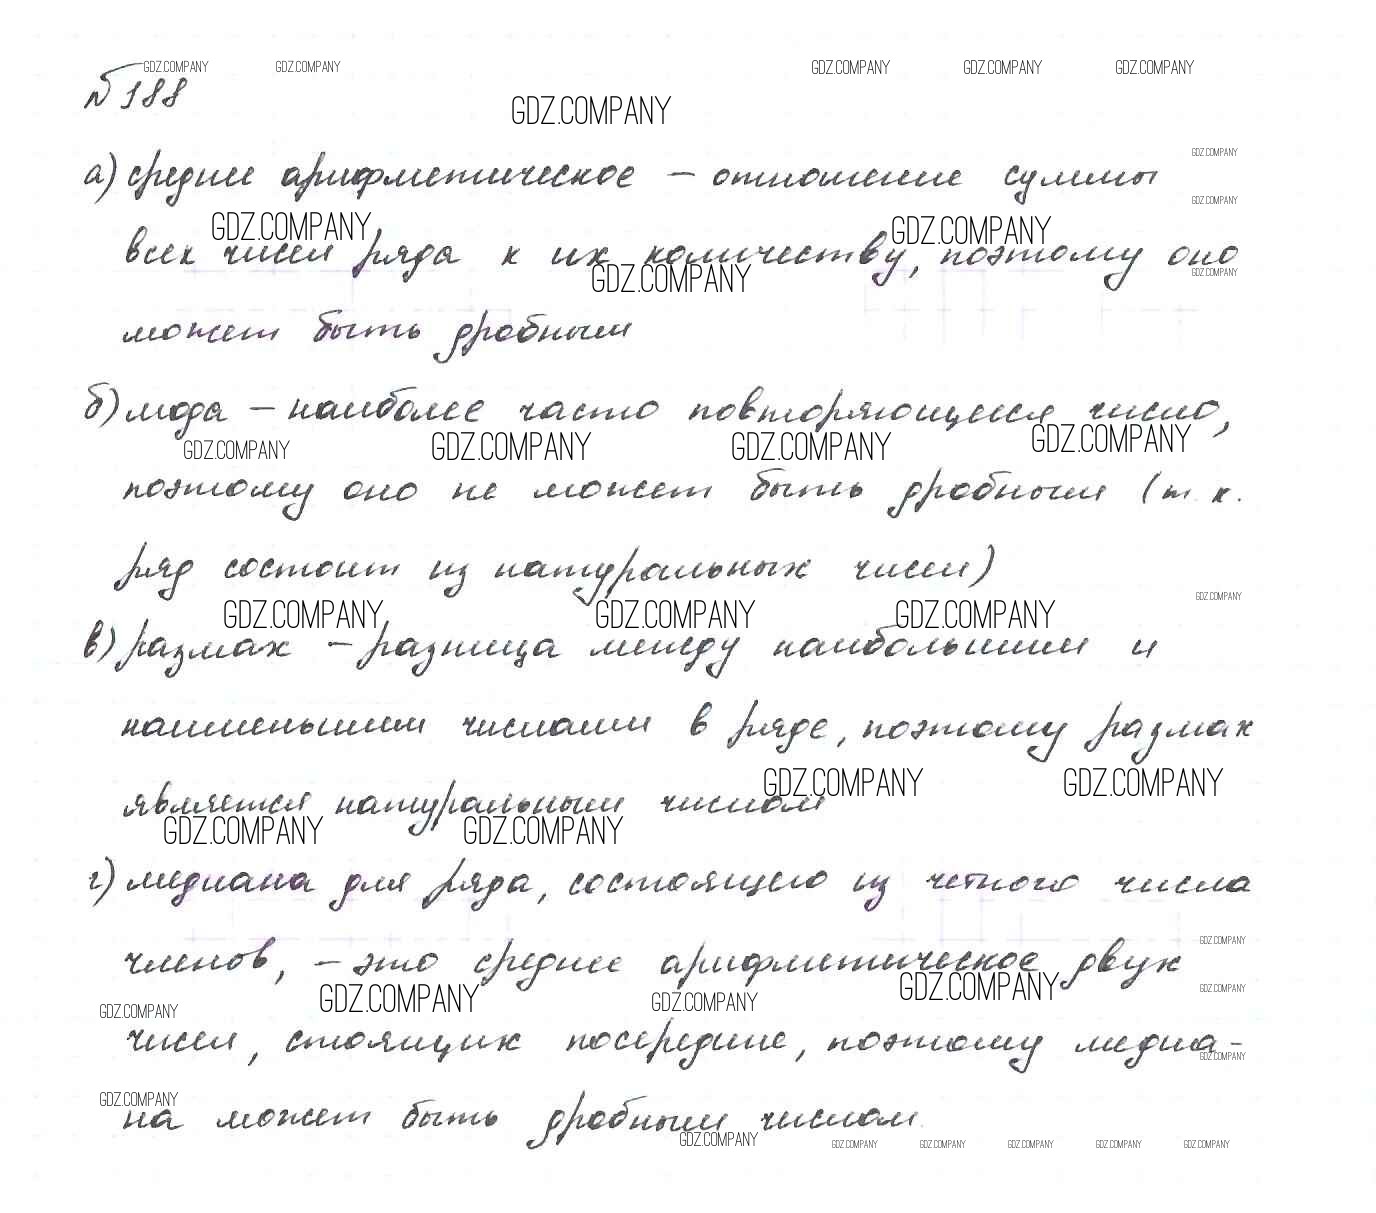 № 188
а) среднее арифметическое – отношение суммы
всех чисел ряда к их количеству, поэтому оно
может быть дробным
б) мода – наиболее часто повторяющееся число,
поэтому оно не может быть дробным (т.к.
ряд состоит из натуральных чисел)
в) размах – разница между наибольшим и
наименьшим числами в ряде, поэтому размах
является натуральным числом
г) медиана для ряда, состоящего из четного числа
членов, – это среднее арифметическое двух
чисел, стоящих посередине, поэтому медиа-
на может быть дробным числом.
GDZ.COMPANY